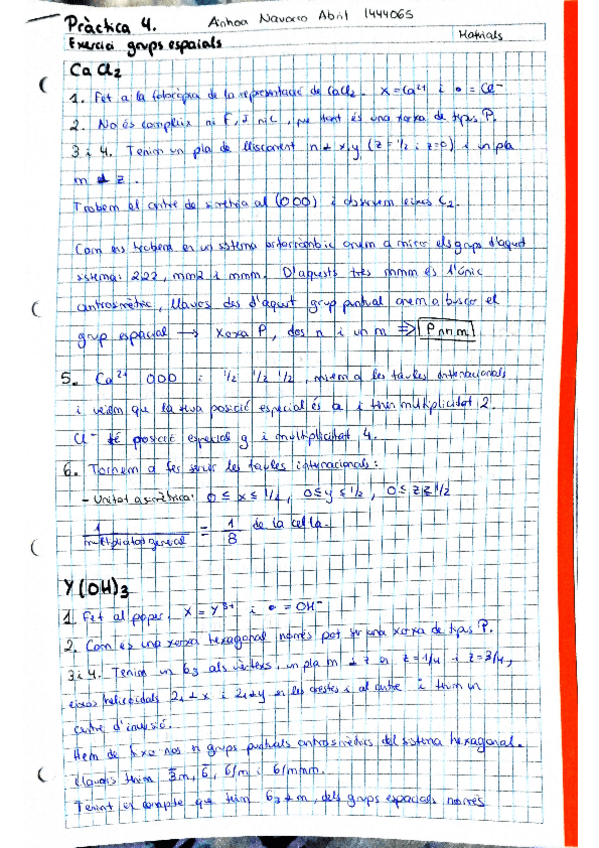 Pràctica 4. Ainhoa Navarro Abril 1444065
Exercici grups espaials Materials
CaCl2
1. Fet a la fotocòpia de la representació de CaCl2. X=Ca2+ i •=Cl-
2. No és compleix ni F, I ni C, per tant és una xarxa de tipus P.
3 i 4. Tenim un pla de lliscament n ⊥ x,y (z=1/2 i z=0) i un pla
m ⊥ z.
Trobem el centre de simetria al (000) i observem eixos C2.
Com ens trobem en un sistema ortorròmbic anem a mirar els grups d'aquest
sistema: 222, mm2 i mmm. D'aquests tres mmm és l'únic
centrosimètric, llavors des d'aquest grup puntual anem a buscar el
grup espacial → xarxa P, dos n i un m ⇒ Pnnm
5. Ca2+ 000 i 1/2 1/2 1/2, mirem a les taules internacionals
i veiem que la seva posició especial és a i tenim multiplicitat 2.
Cl- té posició especial g i multiplicitat 4.
6. Tornem a fer servir les taules internacionals:
- Unitat asimètrica: 0 ≤ x ≤ 1/2, 0 ≤ y ≤ 1/2, 0 ≤ z ≤ 1/2
1/multiplicitat general = 1/8 de la cel·la.
Y(OH)3
1. Fet al paper. X = Y3+ i • = OH-
2. Com és una xarxa hexagonal només pot ser una xarxa de tipus P.
3 i 4. Tenim un 63 als vèrtexs, un pla m ⊥ z en z=1/4 i z=3/4,
eixos helicoidals 21 ⊥ x i 21 ⊥ y en les arestes i al centre i tenim un
centre d'inversió.
Hem de nos en grups puntuals centrosimètrics del sistema hexagonal.
Llavors tenim 3m, 6, 6/m i 6/mmm.
Tenint en compte que tenim 63 ⊥ m, dels grups espacials només